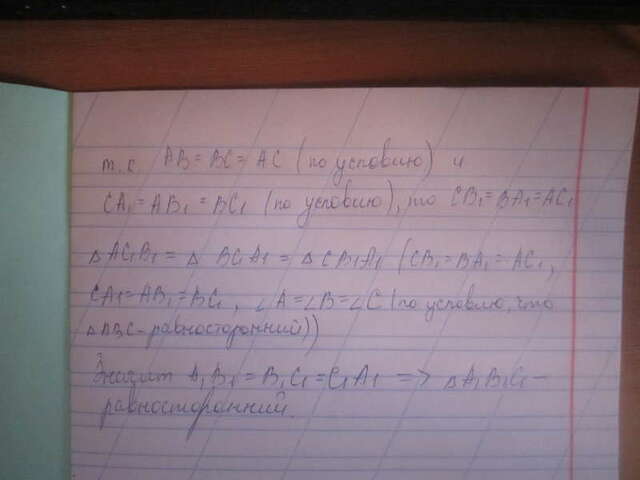 т.к. AB = BC = AC (по условию) и
CA₁ = AB₁ = BC₁ (по условию), то CB₁ = BA₁ = AC₁
△ AC₁B₁ = △ BC₁A₁ = △ CB₁A₁ (CB₁ = BA₁ = AC₁,
CA₁ = AB₁ = BC₁, ∠A = ∠B = ∠C (по условию, что
△ABC - равносторонний))
Значит A₁B₁ = B₁C₁ = C₁A₁ => △ A₁B₁C₁ —
равносторонний.